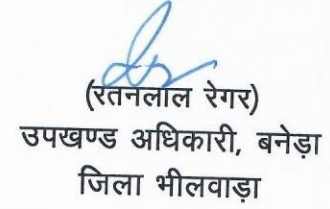 (रतनलाल रेगर)
उपखण्ड अधिकारी, बनेड़ा
जिला भीलवाड़ा